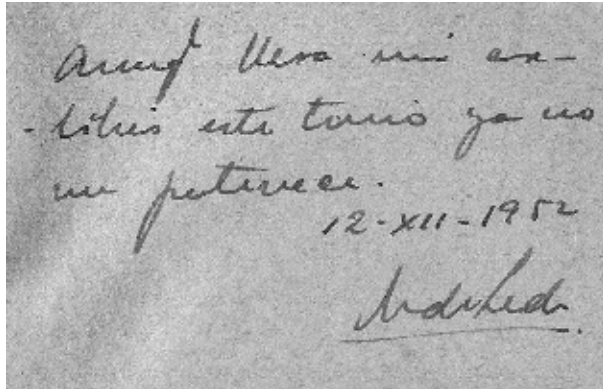 Aunq̃ lleva mi ex-
-libris este tomo ya no
me pertenece.
12-XII-1952